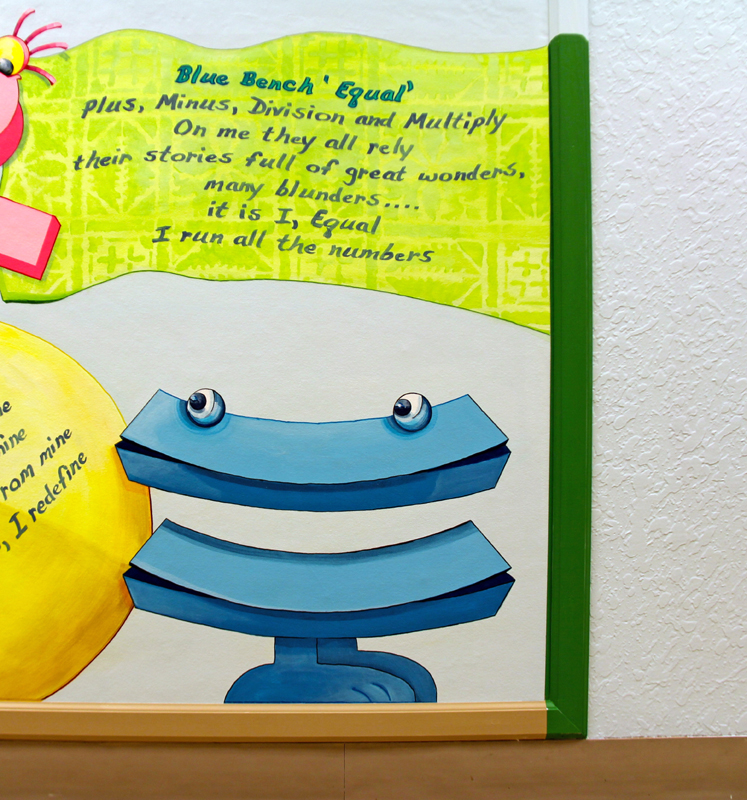 Blue Bench 'Equal'
plus, Minus, Division and Multiply
On me they all rely
their stories full of great wonders,
many blunders....
it is I, Equal
I run all the numbers
rom mine
, I redefine